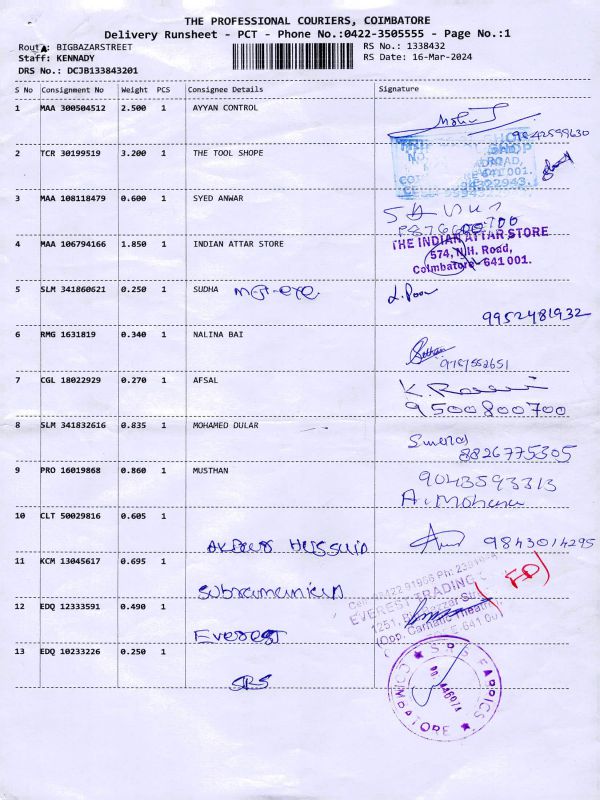 THE PROFESSIONAL COURIERS, COIMBATORE
Delivery Runsheet - PCT - Phone No.:0422-3505555 - Page No.:1
Route: BIGBAZARSTREET
RS No.: 1338432
Staff: KENNADY
RS Date: 16-Mar-2024
DRS No.: DCJB133843201
S No Consignment No Weight PCS Consignee Details Signature
1 MAA 300504512 2.500 1 AYYAN CONTROL
2 TCR 30199519 3.200 1 THE TOOL SHOPE
3 MAA 108118479 0.600 1 SYED ANWAR
4 MAA 106794166 1.850 1 INDIAN ATTAR STORE
THE INDIAN ATTAR STORE
574, N.H. Road,
Coimbatore 641 001.
5 SLM 341860621 0.250 1 SUDHA
9952481932
6 RMG 1631819 0.340 1 NALINA BAI
7 CGL 18022929 0.270 1 AFSAL
9500800700
8 SLM 341832616 0.835 1 MOHAMED DULAR
8826775305
9 PRO 16019868 0.860 1 MUSTHAN
9043593313
A. Mohana
10 CLT 50029816 0.605 1
Hussain 9843014295
11 KCM 13045617 0.695 1
Subramanian
EVEREST TRADING
(Opp. Carnatic Theatre)
12 EDQ 12333591 0.490 1
Everest
13 EDQ 10233226 0.250 1
SRS